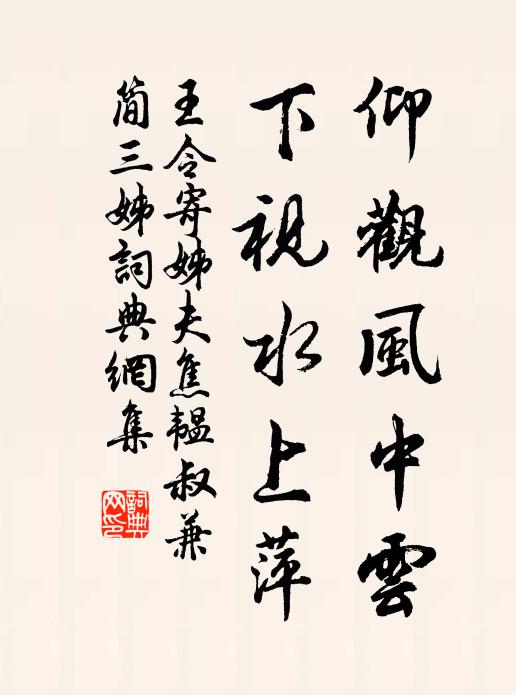 仰觀風中雲
下視水上萍
王令寄姊夫焦韞叔兼
簡三姊詞典網集
詞典
网印